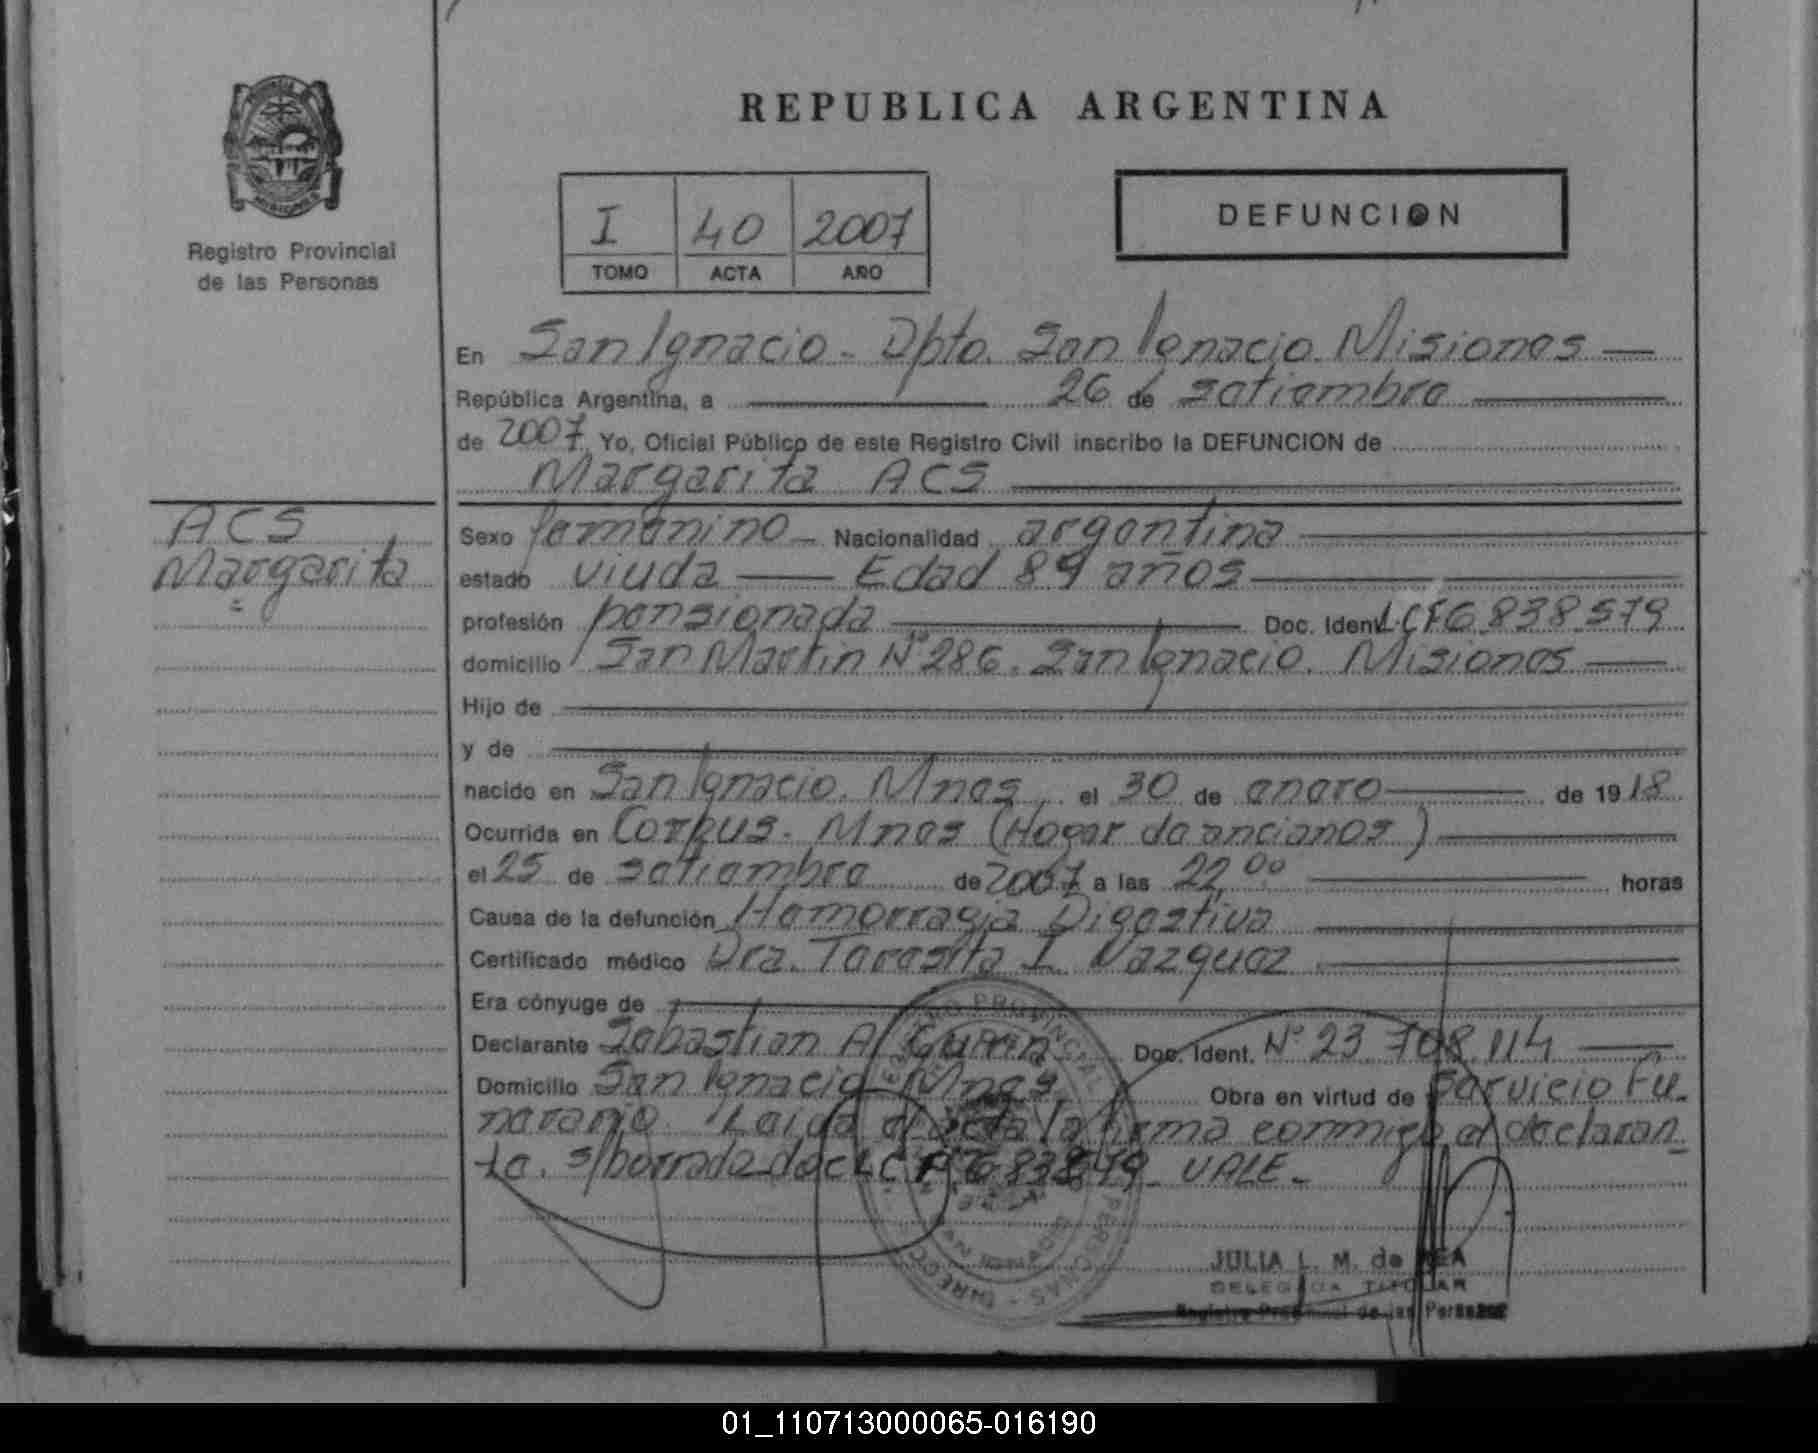 REPUBLICA ARGENTINA
MISIONES
Registro Provincial
de las Personas
I 40 2007
TOMO ACTA AÑO
DEFUNCION
En San Ignacio - Dpto. San Ignacio. Misiones
República Argentina, a 26 de setiembre
de 2007 Yo, Oficial Público de este Registro Civil inscribo la DEFUNCION de
Margarita ACS
ACS
Margarita
Sexo femenino - Nacionalidad argentina
estado viuda Edad 89 años
profesión pensionada Doc. Ident. LC F6.838.579
domicilio San Martin N° 286. San Ignacio. Misiones
Hijo de
y de
nacido en San Ignacio. Mnes. el 30 de enero de 1918
Ocurrida en Corpus. Mnes (Hogar de ancianos)
el 25 de setiembre de 2007 a las 22,00 horas
Causa de la defunción Hemorragia Digestiva
Certificado médico Dra. Teresita I Vazquez
Era cónyuge de
Declarante Sebastian A. Doc. Ident. N° 23.708.114
Domicilio San Ignacio Mnes. Obra en virtud de servicio Fu-
nerario. Leida el acta la firma conmigo el declaran-
te. s/borrado doc LC VALE-
JULIA L. M. de REA
DELEGADA TITULAR
Registro Provincial de las Personas
01_110713000065-016190